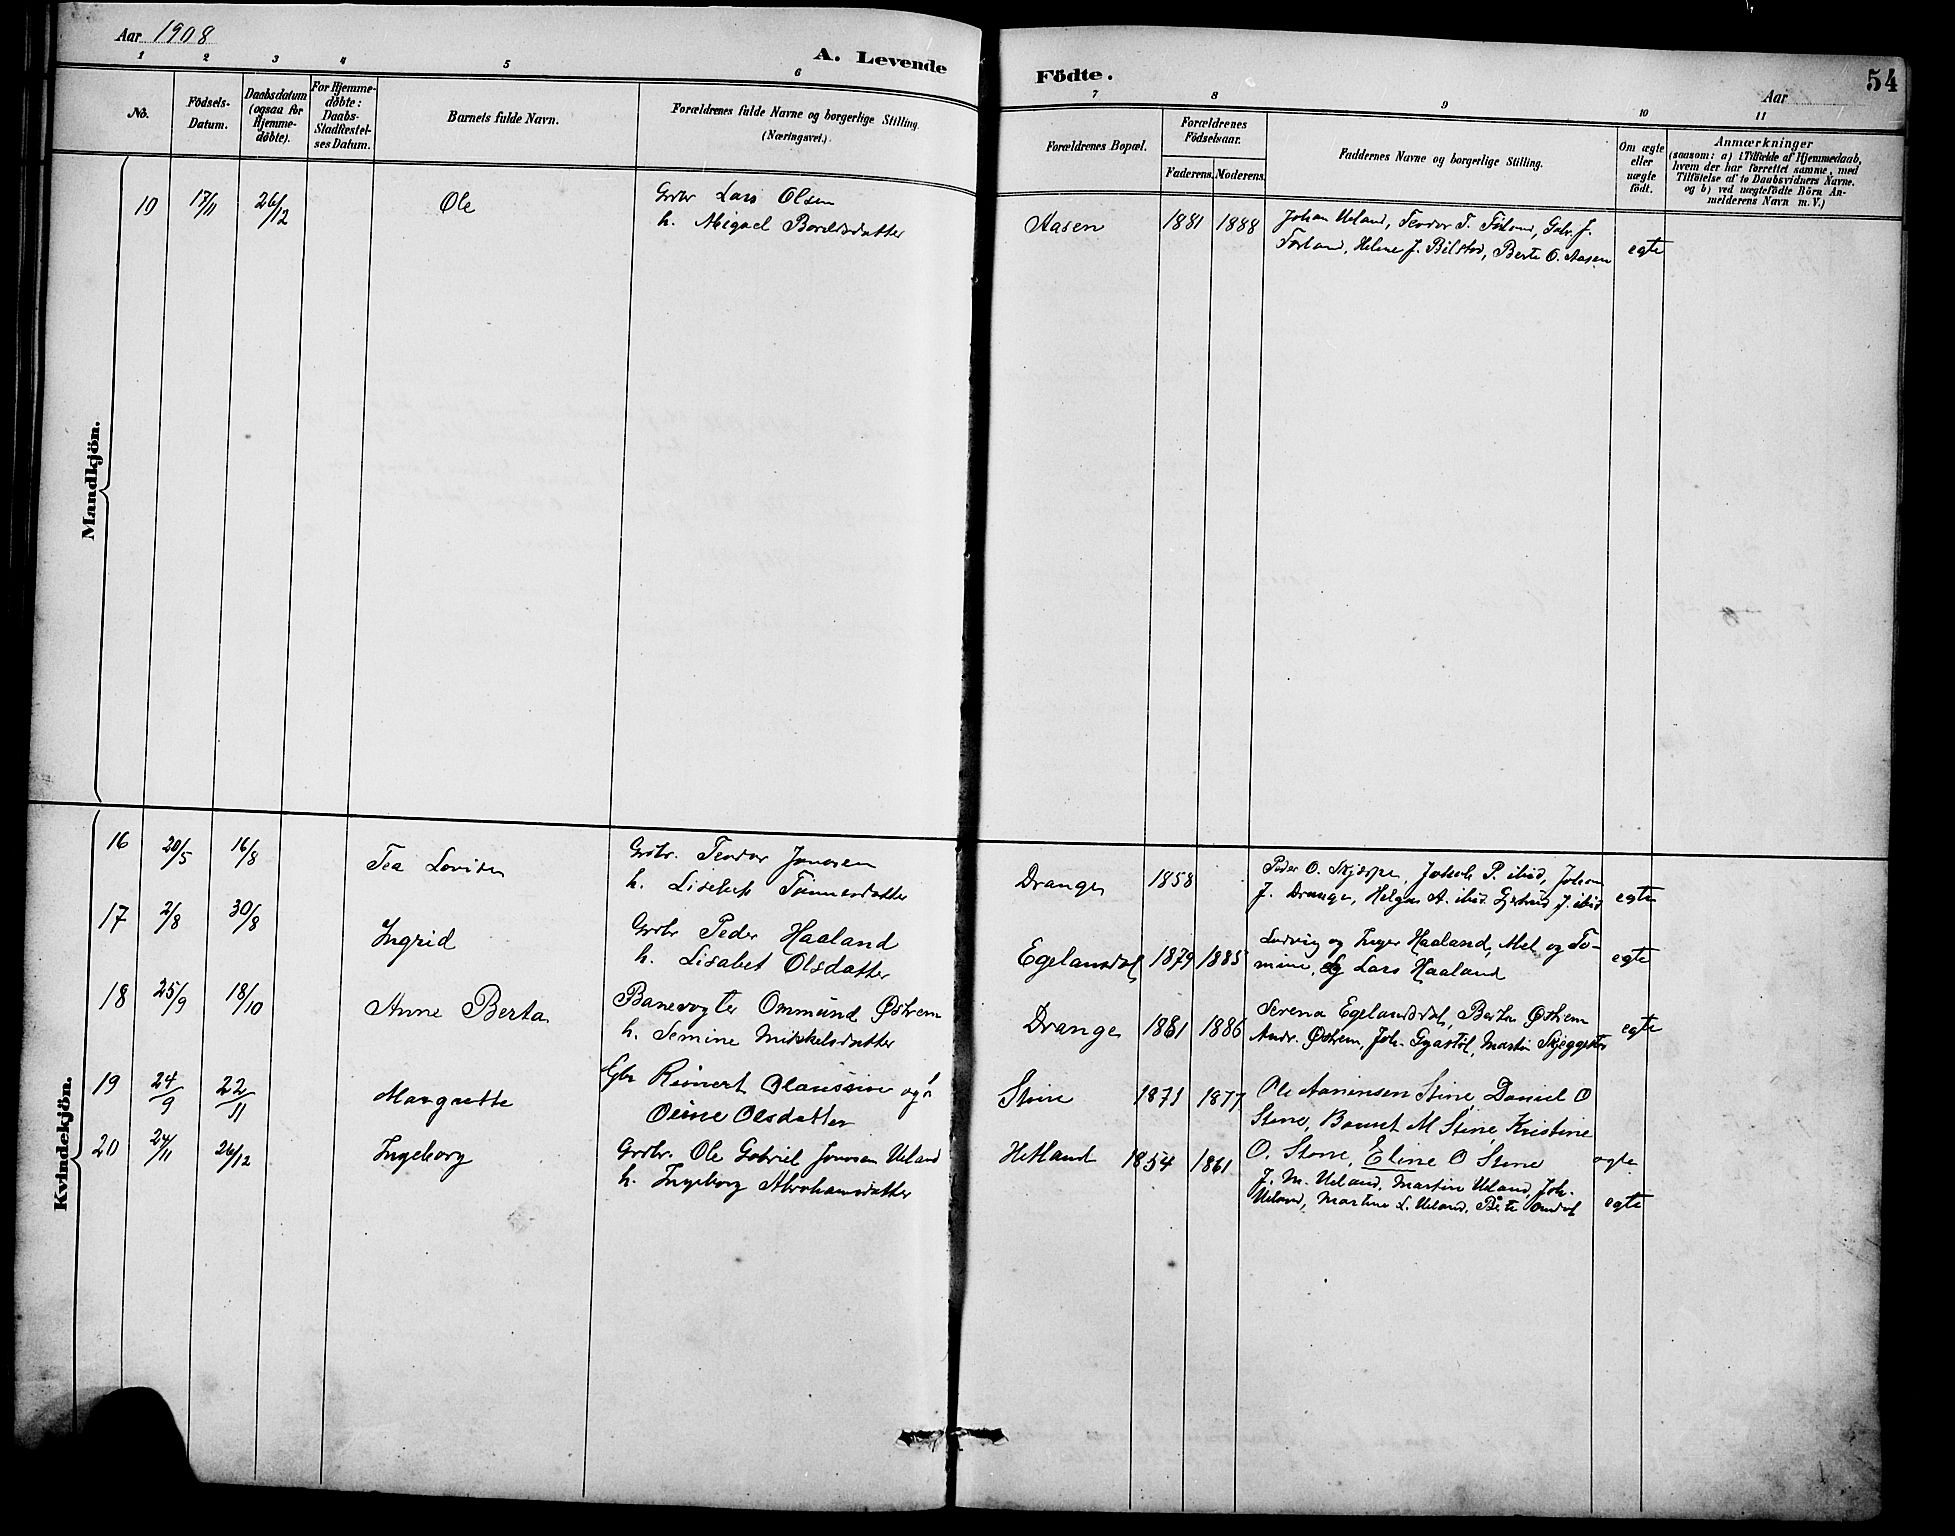 Aar 1908
A. Levende
1 2 3 4 5 6
No.
Födsels-
Datum.
Daabsdatum
(ogsaa for
Hjemme-
døbte).
For Hjemme-
døbte:
Daabs-
Stadfæstel-
ses Datum.
Barnets fulde Navn.
Forældrenes fulde Navne og borgerlige Stilling.
(Næringsvei.)
Mandkjön.
10 17/11 26/12 Ole Grbr Lars Olsen
h. Migael Bordsdatter
Kvindekjön.
16 20/5 16/8 Tea Lovise Grbr. Teodor Jonassen
h. Lisebet Tønnesdatter
17 2/8 30/8 Ingrid Grbr Peder Haaland
h. Lisabet Olsdatter
18 25/9 18/10 Anne Berta Banevogter Ommund Østrem
h. Semine Mikkelsdatter
19 24/9 22/11 Margrette Gbr Reinert Olaussen og h
Oline Olsdatter
20 24/11 26/12 Ingeborg Grbr. Ole Gabriel Jonasen Ueland
h. Ingeborg Abrahamsdatter
Födte.
Aar
54
7 8 9 10 11
Forældrenes Bopæl.
Forældrenes
Födselsaar.
Faderens. Moderens.
Faddernes Navne og borgerlige Stilling.
Om ægte
eller
uægte
födt.
Anmærkninger
(saasom: a) i Tilfælde af Hjemmedaab,
hvem der har forrettet samme, med
Tilføielse af to Daabsvidners Navne.
og b) ved uægtefödte Börn An-
melderens Navn m. V.)
Aasen 1881 1888 Johan Ueland, Teodor T. Förland, Gabr. J.
Förland, Helene J. Bilstad, Berte O. Aasen egte
Drange 1858 Peder O. Skjerpe, Jakob P. ibid, Johan
J. Drange, Helga A. ibid Gjertrud J. ibid egte
Egelandsdal 1879 1885 Ludvig og Inger Haaland, Mel og To-
mine, og Lars Haaland egte
Drange 1881 1886 Serena Egelandsdal, Berta Østrem
Andr. Østrem, Joh. Gyastøl, Martin Skjeggestad egte
Stene 1873 1877 Ole Aaninsen Stine, Daniel O
Stene, M Stine Kristine
O. Stene, Eline O Stene egte
Hetland 1854 1861
J. M. Ueland, Martin Ueland, Joh.
Ueland, Martine L. Ueland, Berte Omdal egte